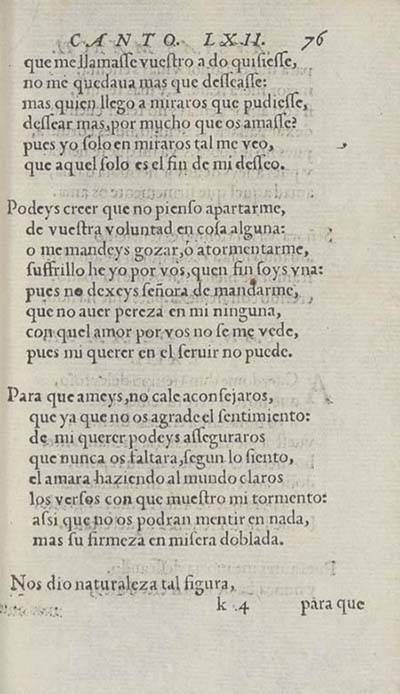 CANTO. LXII. 76
que me llamaſſe vueſtro a do quiſieſſe,
no me quedaua mas que deſſeaſſe:
mas quien llego a miraros que pudieſſe,
deſſear mas, por mucho que os amaſſe?
pues yo ſolo en miraros tal me veo,
que aquel ſolo es el fin de mi deſſeo.
Podeys creer que no pienſo apartarme,
de vueſtra voluntad en coſa alguna:
o me mandeys gozar, ó atormentarme,
ſuffrillo he yo por vos, quen fin ſoys vna:
pues no dexeys ſeñora de mandarme,
que no auer pereza en mi ninguna,
con quel amor por vos no ſe me vede,
pues mi querer en el ſeruir no puede.
Para que ameys, no cale aconſejaros,
que ya que no os agrade el ſentimiento:
de mi querer podeys aſſeguraros
que nunca os faltara, ſegun lo ſiento,
el amara haziendo al mundo claros
los verſos con que mueſtro mi tormento:
aſsi que no os podran mentir en nada,
mas ſu firmeza en miſera doblada.
Nos dio naturaleza tal figura,
k 4 para que